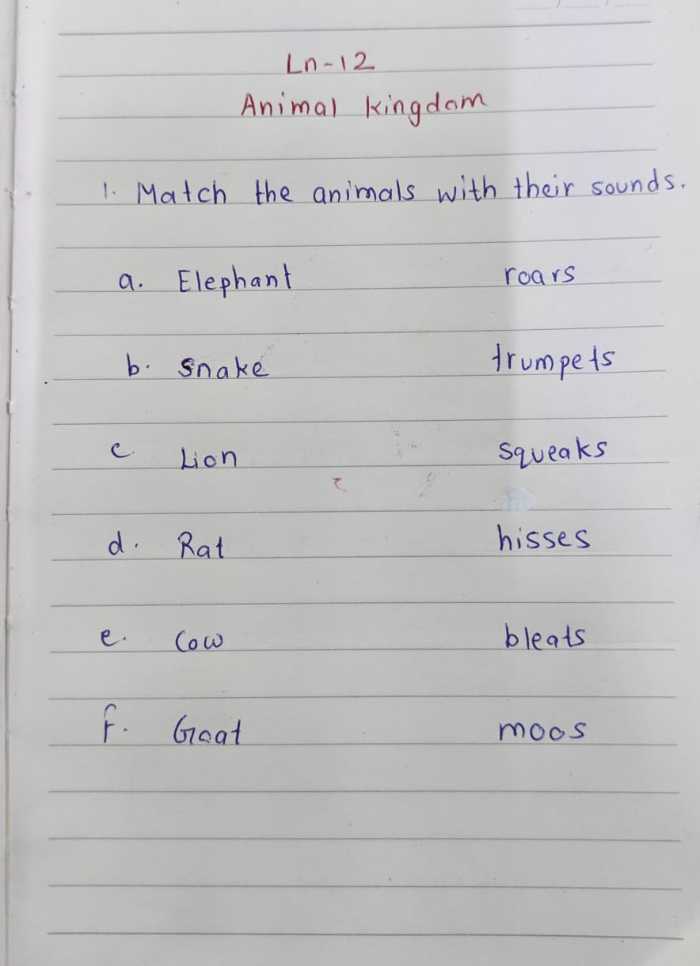 Ln-12
Animal kingdom
1. Match the animals with their sounds.
a. Elephant roars
b. Snake trumpets
c. Lion squeaks
d. Rat hisses
e. Cow bleats
f. Goat moos